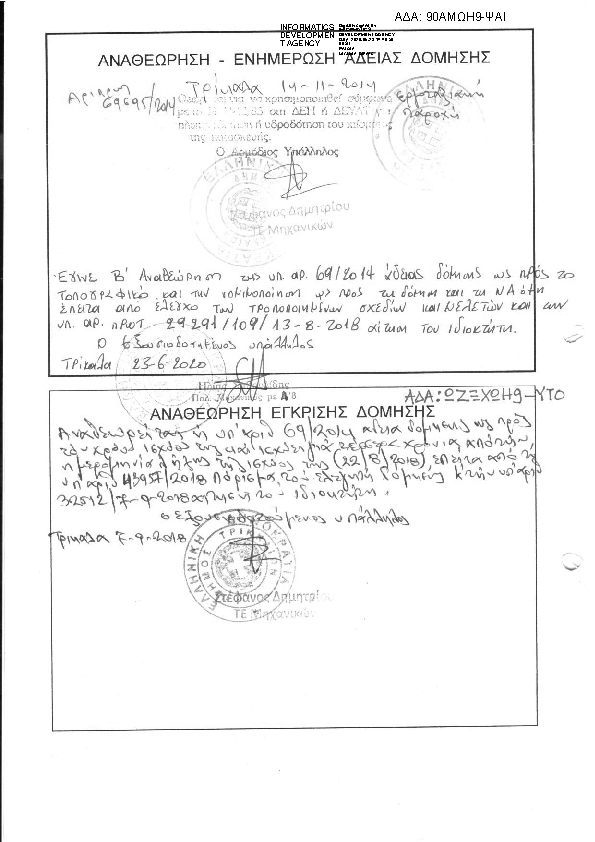 ΑΔΑ: 90ΑΜΩΗ9-ΨΑΙ
INFORMATICS
DEVELOPMEN
T AGENCY
ΑΝΑΘΕΩΡΗΣΗ - ΕΝΗΜΕΡΩΣΗ ΑΔΕΙΑΣ ΔΟΜΗΣΗΣ
Τρίκαλα 14-11-2014
69695/2014
να χρησιμοποιηθεί
εργοταξιακή
παροχή
ΔΕΗ ή ΔΕΥΑΤ
ή υδροδότηση του
της κατασκευής.
Ο Αρμόδιος Υπάλληλος
Στέφανος Δημητρίου
ΤΕ Μηχανικών
Έγινε Β' Αναθεώρηση της υπ. αρ. 69/2014 άδειας δόμησης ως προς το
τοπογραφικό και την τακτοποίηση ως προς τη δόμηση και τα
έπειτα από έλεγχο των τροποποιημένων σχεδίων και μελετών και την
υπ. αρ. πρωτ 29291/109/13-8-2018 αίτηση του ιδιοκτήτη.
Ο εξουσιοδοτημένος υπάλληλος
Τρίκαλα 23-6-2020
με Α'β
ΑΔΑ: ΩΖΞΧΩΗ9-ΥΤΟ
ΑΝΑΘΕΩΡΗΣΗ ΕΓΚΡΙΣΗΣ ΔΟΜΗΣΗΣ
Αναθεωρείται η υπ' αριθ 69/2014 άδεια δόμησης ως προς
τον χρόνο ισχύος της και ισχύει για τέσσερα χρόνια από την
ημερομηνία λήξης της ισχύος της (22/8/2018), έπειτα από το
υπ' αριθ 43957/2018 πόρισμα του ελεγκτή δόμησης κ' την υπ' αριθ
32512/7-9-2018 αίτηση του ιδιοκτήτη.
ο εξουσιοδοτούμενος υπάλληλος
Τρίκαλα 7-9-2018
ΕΛΛΗΝΙΚΗ ΔΗΜΟΚΡΑΤΙΑ
ΔΗΜΟΣ ΤΡΙΚΚΑΙΩΝ
Στέφανος Δημητρίου
ΤΕ Μηχανικών